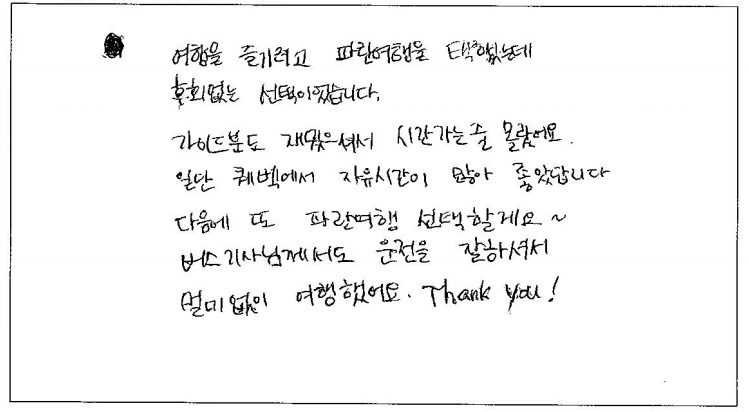 여행을 즐기려고 파란여행을 택했었는데
후회없는 선택이였습니다.
가이드분도 재밌으셔서 시간가는줄 몰랐어요.
일단 퀘벡에서 자유시간이 많아 좋았답니다
다음에 또 파란여행 선택할게요~
버스기사님께서도 운전을 잘하셔서
멀미없이 여행했어요. Thank you!